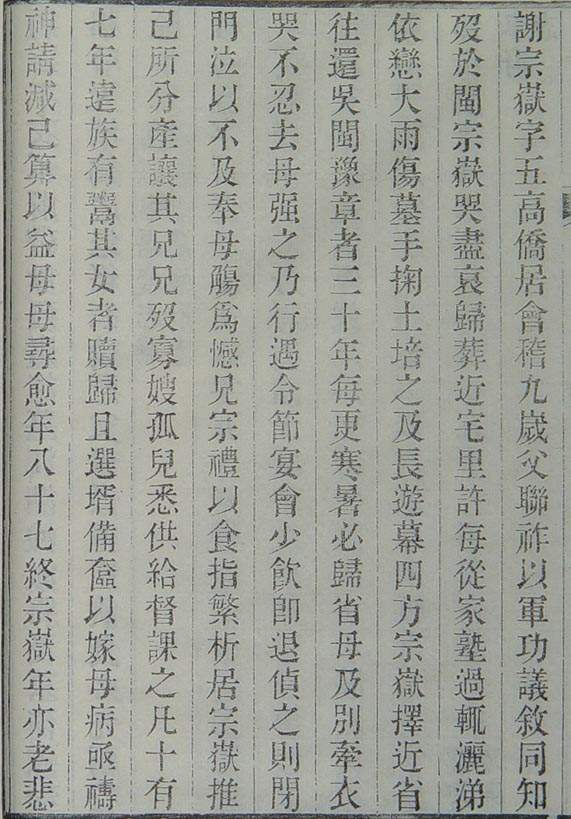 謝宗嶽字五高僑居會稽九歲父聯祚以軍功議敘同知
歿於閩宗嶽哭盡哀歸葬近宅里許每從家塾過輒灑涕
依戀大雨傷墓手掬土培之及長遊幕四方宗嶽擇近省
往還吳閩豫章者三十年每更寒暑必歸省母及別牽衣
哭不忍去母强之乃行遇令節宴會少飲卽退偵之則閉
門泣以不及奉母觴爲憾兄宗禮以食指繁析居宗嶽推
己所分產讓其兄兄歿寡嫂孤兒悉供給督課之凡十有
七年遠族有鬻其女者贖歸且選壻備奩以嫁母病亟禱
神請減己算以益母母尋愈年八十七終宗嶽年亦老悲